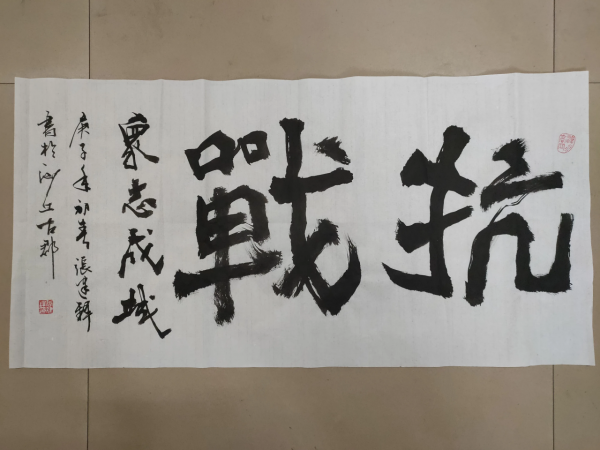 抗戰
衆志成城
庚子年初春 張建
書於江古郡